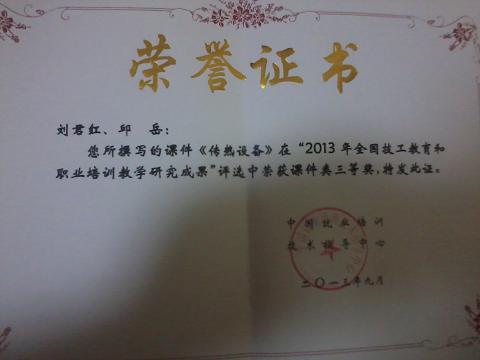 荣誉证书
刘君红、邱 岳：
您所撰写的课件《传热设备》在“2013年全国技工教育和
职业培训教学研究成果”评选中荣获课件类三等奖，特发此证。
中国就业培训
技术指导中心
二〇一三年九月